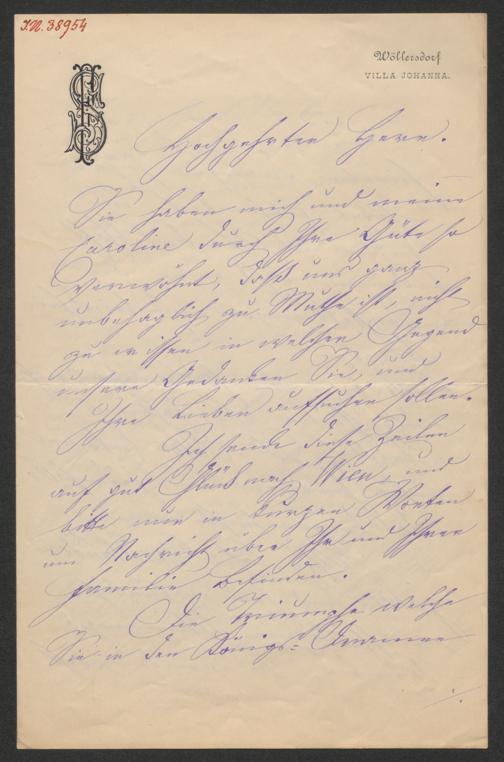 I.N. 38954
Wöllersdorf
VILLA JOHANNA.
Hochgeehrter Herr.
Sie haben mich und meine
Caroline durch Ihre Güte so
verwöhnt, daß uns ganz
unbehaglich zu Muthe ist, nicht
zu wissen in welcher Gegend
unsere Gedanken Sie, und
Ihre Lieben aufsuchen sollen.
Ich sende diese Zeilen
auf gut Glück nach Wien, und
bitte nur in kurzen Worten
um Nachricht über Ihr und Ihrer
Familie Befinden.
Die Triumphe welche
Sie in den Königs=Dramen